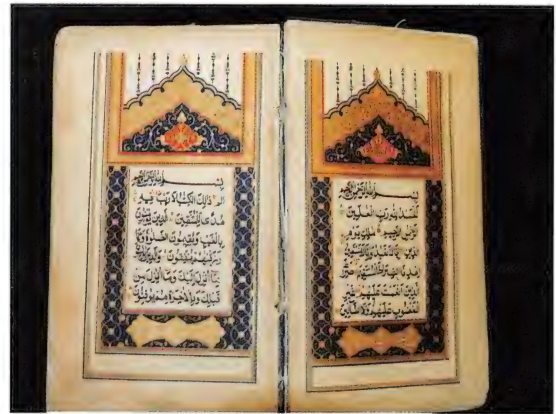 بِسْمِ اللهِ الرَّحْمٰنِ الرَّحِيمِ
الْحَمْدُ لِلّٰهِ رَبِّ الْعٰلَمِينَ
الرَّحْمٰنِ الرَّحِيمِ مٰلِكِ يَوْمِ
الدِّينِ إِيَّاكَ نَعْبُدُ وَإِيَّاكَ نَسْتَعِينُ
اِهْدِنَا الصِّرَاطَ الْمُسْتَقِيمَ صِرَاطَ
الَّذِينَ أَنْعَمْتَ عَلَيْهِمْ غَيْرِ
الْمَغْضُوبِ عَلَيْهِمْ وَلَا الضَّالِّينَ
بِسْمِ اللهِ الرَّحْمٰنِ الرَّحِيمِ
الم ذٰلِكَ الْكِتٰبُ لَا رَيْبَ فِيهِ
هُدًى لِلْمُتَّقِينَ الَّذِينَ يُؤْمِنُونَ
بِالْغَيْبِ وَيُقِيمُونَ الصَّلٰوةَ وَمِمَّا
رَزَقْنٰهُمْ يُنْفِقُونَ وَالَّذِينَ يُؤْمِنُونَ
بِمَا أُنْزِلَ إِلَيْكَ وَمَا أُنْزِلَ مِنْ
قَبْلِكَ وَبِالْآخِرَةِ هُمْ يُوقِنُونَ